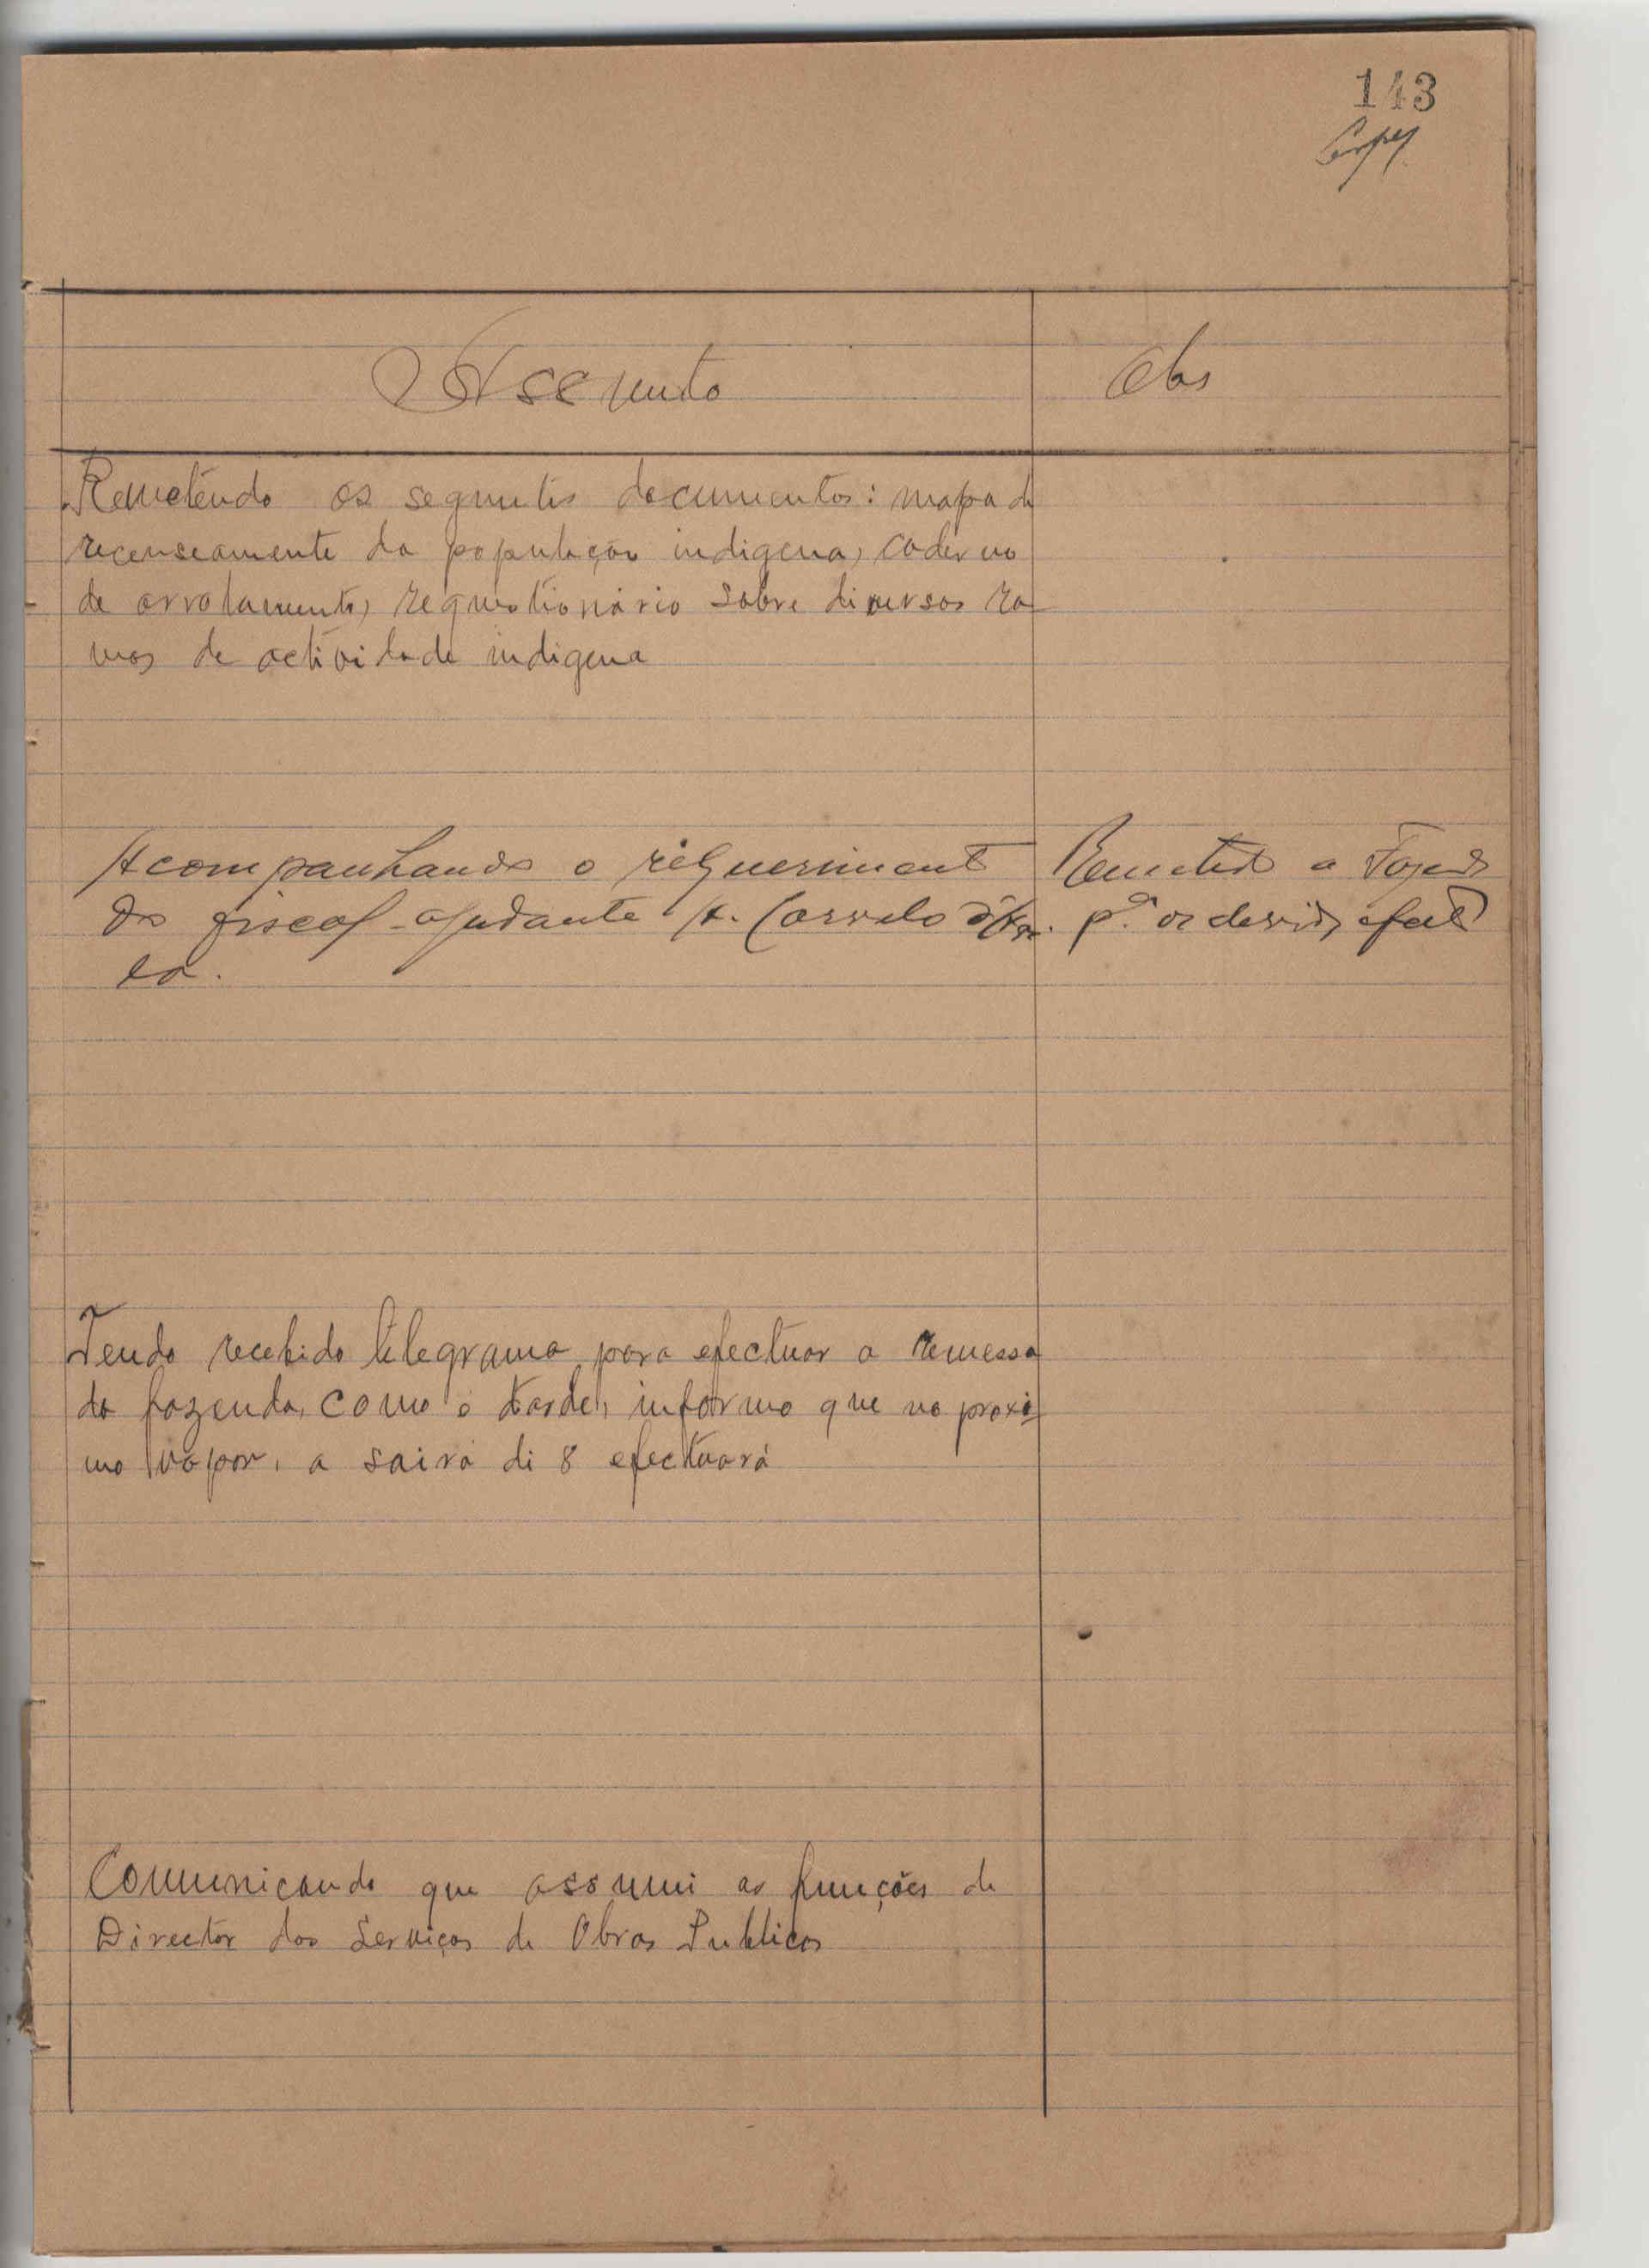 143
Assunto Obs
Remetendo os seguintes documentos: mapa de
recenseamento da população indigena, caderno
de arrolamento, requestionário sobre diversos ra-
mos de actividade indigena
Acompanhando o requerimento Remetido a Fazenda
do fiscal-ajudante A. p.ª os devidos efeitos
Tendo recebido telegrama para efectuar a remessa
da fazenda, como é tarde, informo que no proxi
mo vapor, a sairá di 8 efectuará
Comunicando que assumi as funções de
Director dos Serviços de Obras Publicas